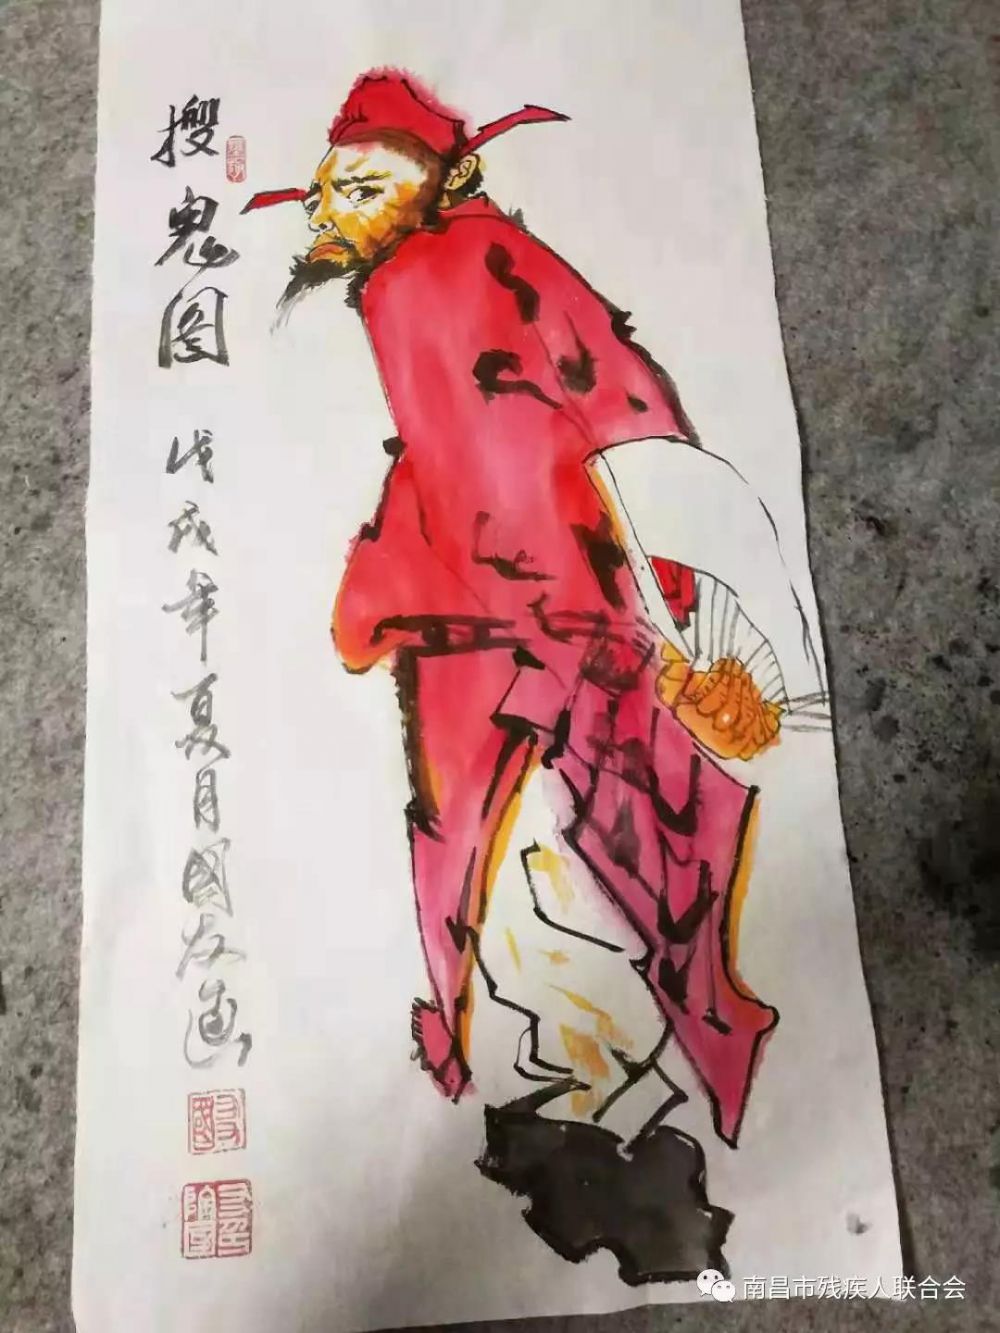 搜鬼图
戊戌年夏月國友画
南昌市残疾人联合会